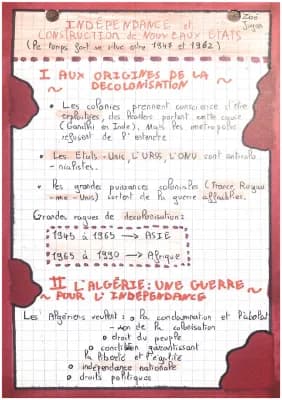 INDÉPENDANCE et
CONSTRUCTION de NOUVEAUX ÉTATS
(le temps fort se situe entre 1947 et 1962)
Zoé
I AUX ORIGINES DE LA
DECOLONISATION
• Les colonies prennent conscience d'être
exploitées, des leaders portent cette cause
(Gandhi en Inde). Mais les métropoles
refusent de l'entendre
• Les États-Unis, L'URSS, L'ONU sont anticolo
-nialistes.
• Les grandes puissances coloniales (France, Royau
-me-Unis) sortent de la guerre affaiblies.
Grandes vagues de decolonisation:
1945 à 1965 → ASIE
1965 à 1990 → Afrique
II L'ALGÉRIE: UNE GUERRE
POUR L'INDÉPENDANCE
Les Algériens veulent: o la condamnation et l'aboli
-on de la colonisation
o droit du peuple
o constitution garantissant
la liberté et l'égalité
o indépendance nationale
o droits politiques